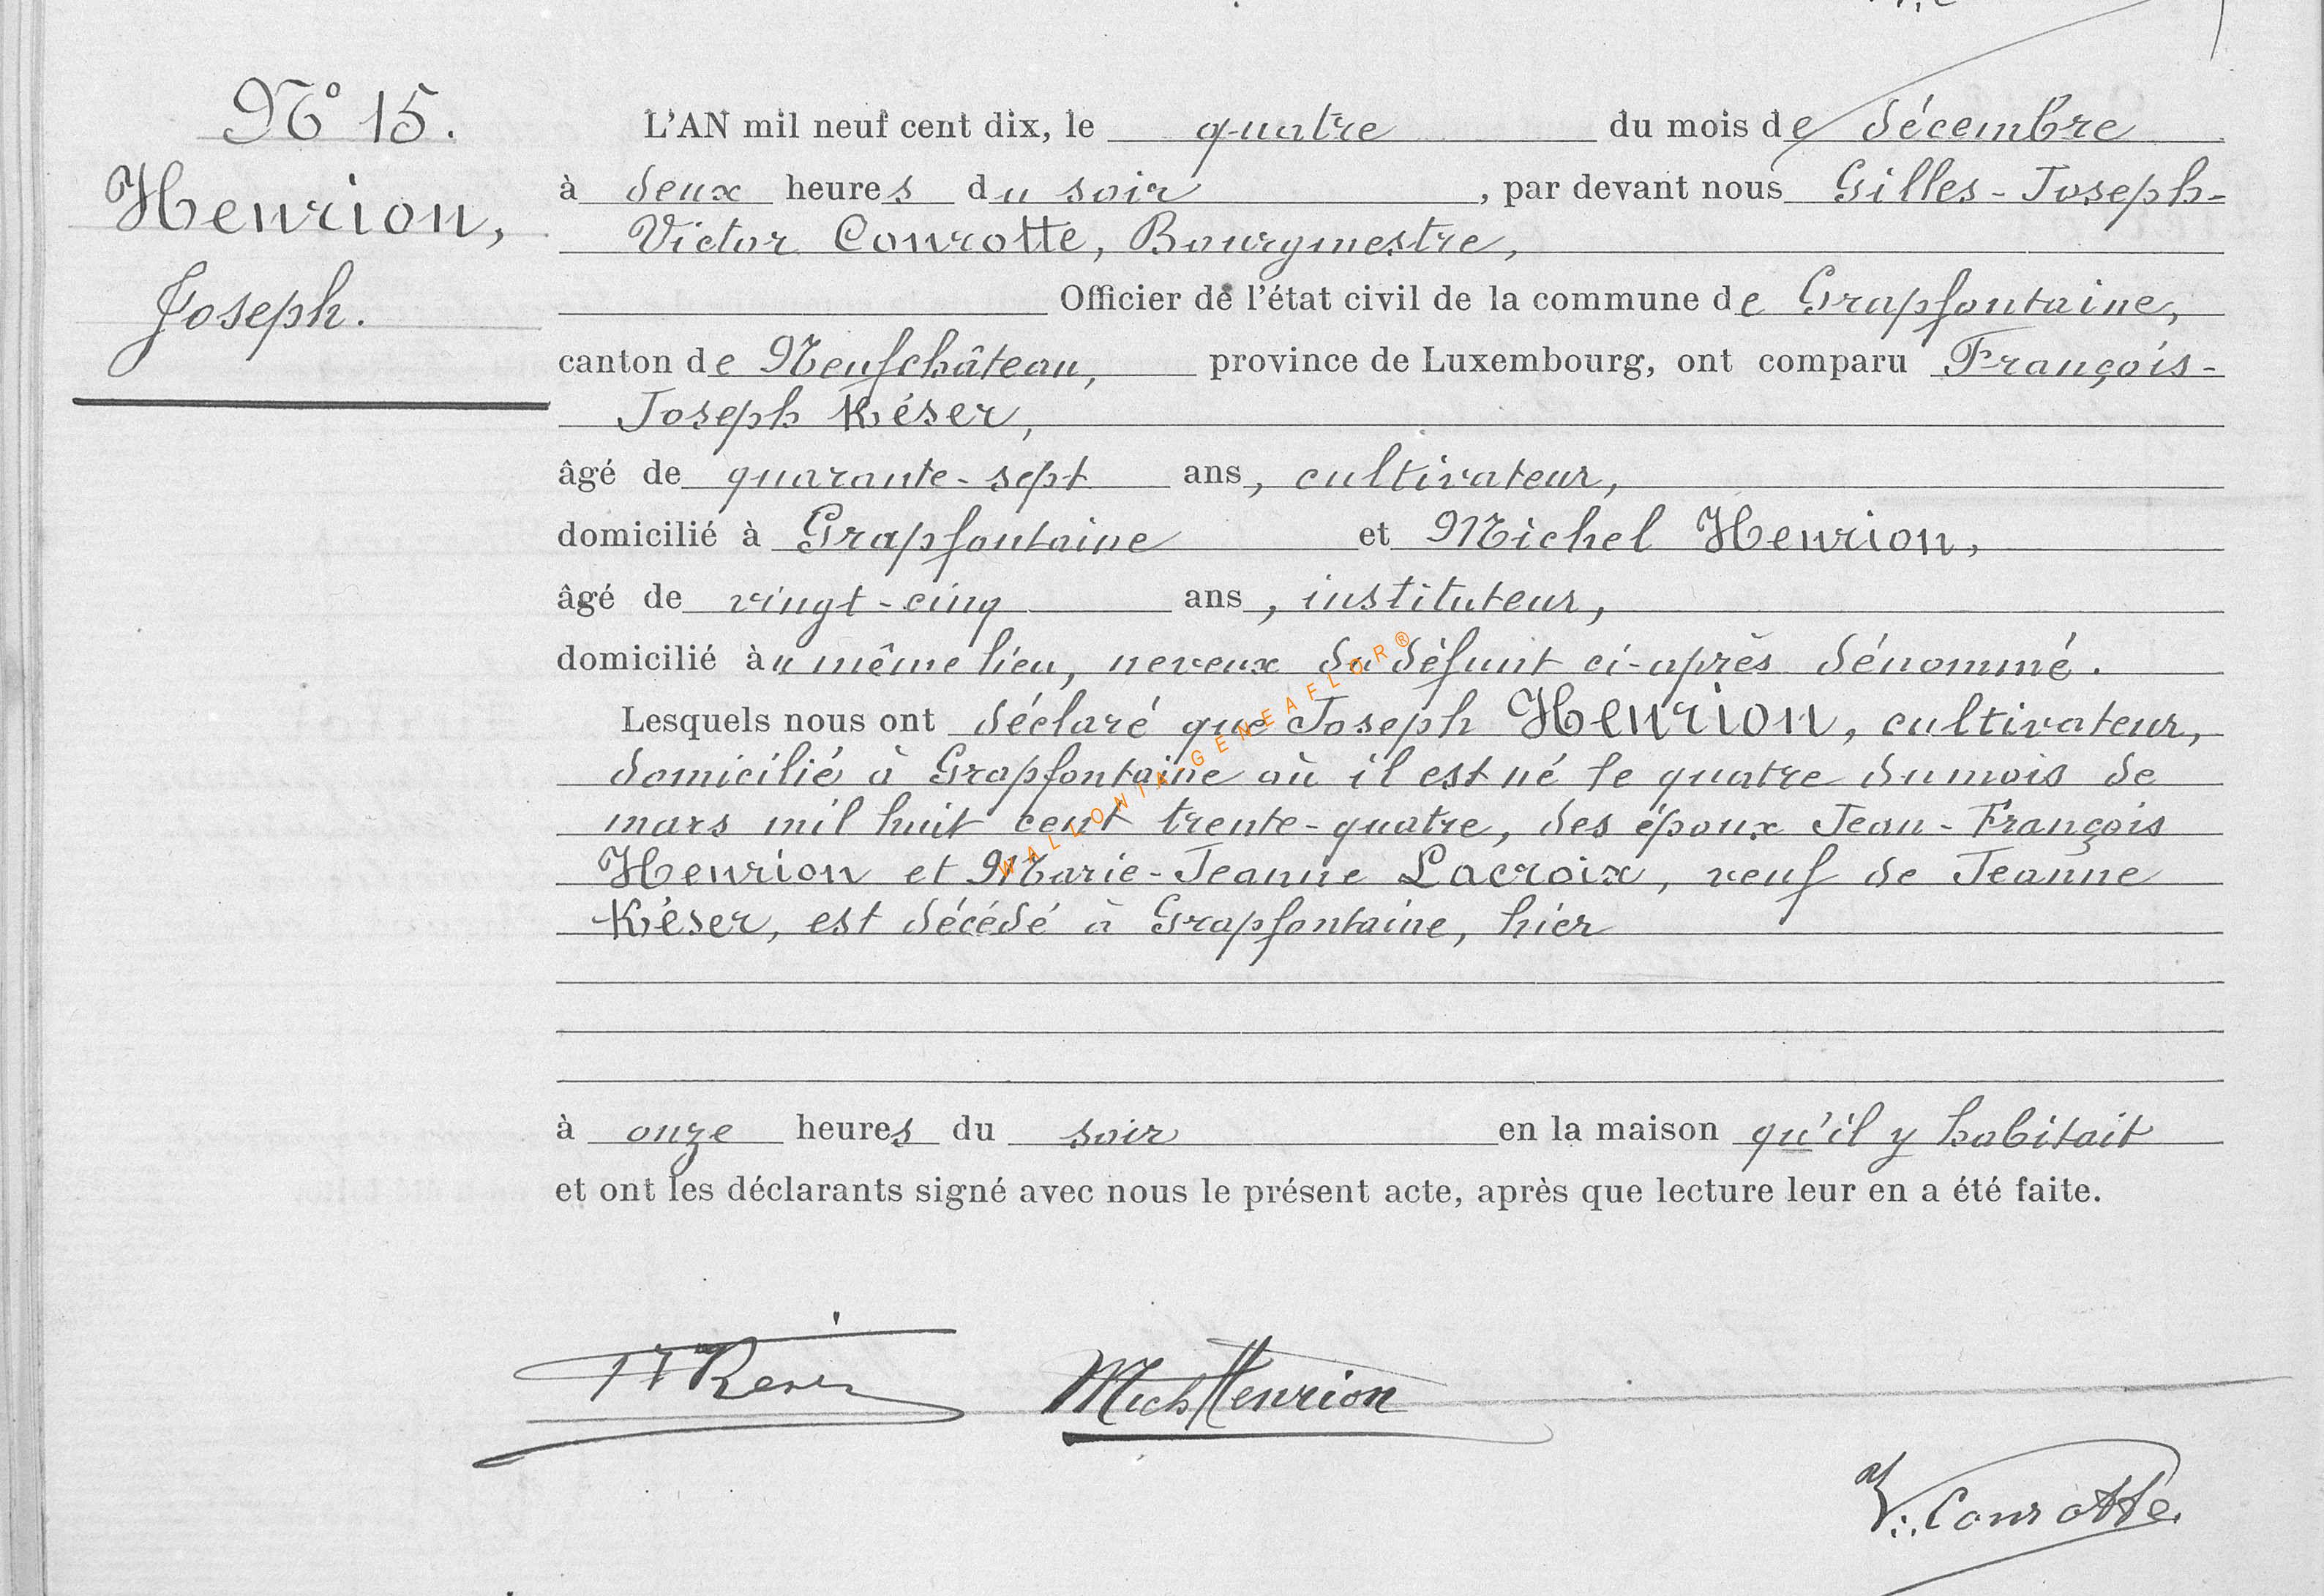 N° 15.
Henrion,
Joseph.
L'AN mil neuf cent dix, le quatre du mois de décembre
à deux heures du soir, par devant nous Gilles-Joseph-
Victor Conrotte, Bourgmestre,
Officier de l'état civil de la commune de Grapfontaine,
canton de Neufchâteau, province de Luxembourg, ont comparu François-
Joseph Késer,
âgé de quarante-sept ans, cultivateur,
domicilié à Grapfontaine et Michel Henrion,
âgé de vingt-cinq ans, instituteur,
domicilié au même lieu, neveux du défunt ci-après dénommé.
Lesquels nous ont déclaré que Joseph Henrion, cultivateur,
domicilié à Grapfontaine où il est né le quatre du mois de
mars mil huit cent trente-quatre, des époux Jean-François
Henrion et Marie-Jeanne Lacroix, veuf de Jeanne
Késer, est décédé à Grapfontaine, hier
à onze heures du soir en la maison qu'il y habitait
et ont les déclarants signé avec nous le présent acte, après que lecture leur en a été faite.
Mich Henrion
V. Conrotte
WALLONIA GENEAFLOR®